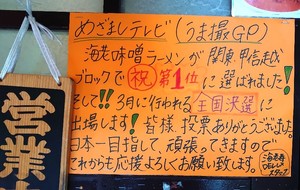 めざましテレビ(うま撮GP)
海老味噌ラーメンが関東甲信越
ブロックで祝第1位に選ばれました!
そして!!3月に行われる全国決選に
出場します!皆様、投票ありがとうございます。
日本一目指して、頑張ってきますので
これからも応援よろしくお願い致します。
スタッフ
営業